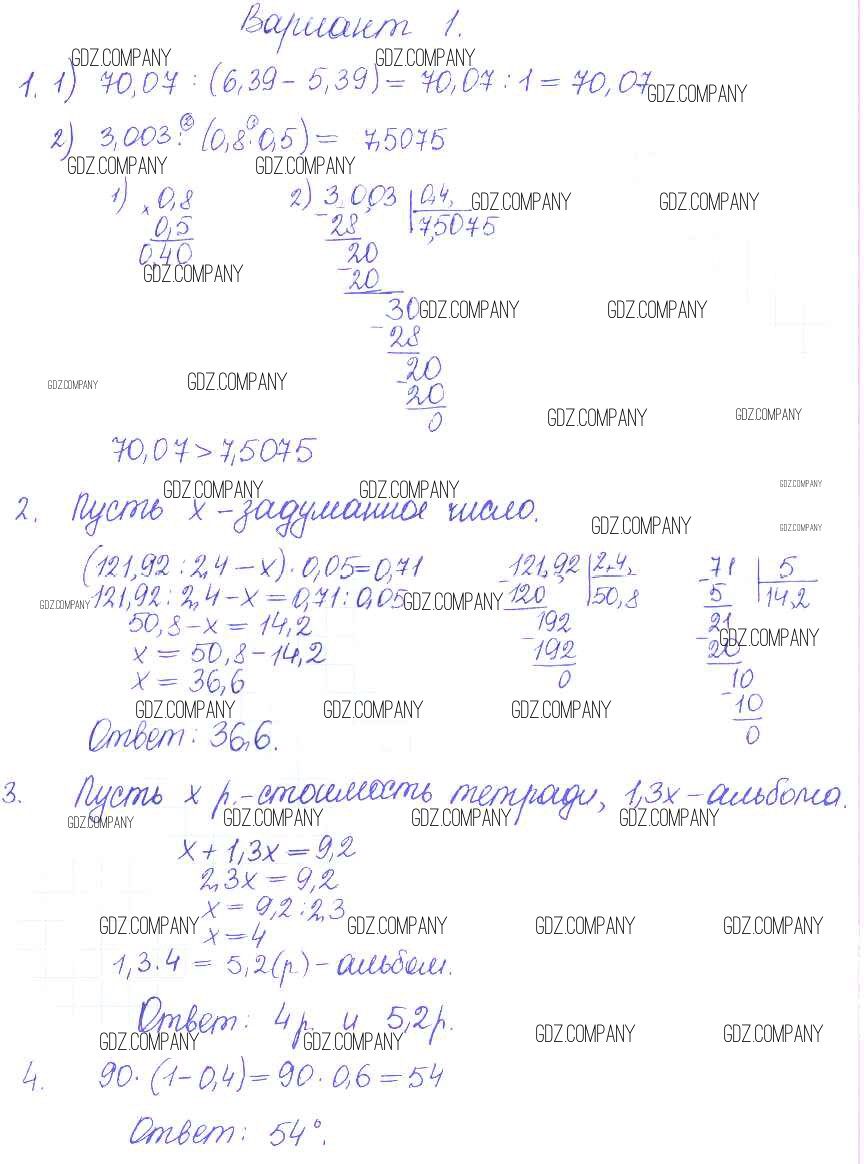 Вариант 1.
GDZ.COMPANY GDZ.COMPANY
1. 1) 70,07 : (6,39 - 5,39) = 70,07 : 1 = 70,07
GDZ.COMPANY
2) 3,003 :② (0,8 ·① 0,5) = 7,5075
GDZ.COMPANY GDZ.COMPANY
1) × 0,8 2) 3,003 | 0,4,
GDZ.COMPANY GDZ.COMPANY
0,5 - 28 7,5075
0,40 20
GDZ.COMPANY
- 20
30
GDZ.COMPANY GDZ.COMPANY
- 28
20
GDZ.COMPANY GDZ.COMPANY
- 20
0
GDZ.COMPANY GDZ.COMPANY
70,07 > 7,5075
GDZ.COMPANY GDZ.COMPANY GDZ.COMPANY
2. Пусть x - задуманное число.
GDZ.COMPANY GDZ.COMPANY
(121,92 : 2,4 - x) · 0,05 = 0,71 - 121,92 | 2,4, - 71 | 5
GDZ.COMPANY 121,92 : 2,4 - x = 0,71 : 0,05 GDZ.COMPANY 120 50,8 5 14,2
50,8 - x = 14,2 192 21
GDZ.COMPANY
x = 50,8 - 14,2 - 192 - 20
x = 36,6 0 10
GDZ.COMPANY GDZ.COMPANY GDZ.COMPANY - 10
Ответ: 36,6. 0
3. Пусть x р. - стоимость тетради, 1,3x - альбома.
GDZ.COMPANY GDZ.COMPANY GDZ.COMPANY GDZ.COMPANY
x + 1,3x = 9,2
2,3x = 9,2
x = 9,2 : 2,3
GDZ.COMPANY GDZ.COMPANY GDZ.COMPANY GDZ.COMPANY
x = 4
1,3 · 4 = 5,2 (р) - альбом.
Ответ: 4 р. и 5,2 р.
GDZ.COMPANY GDZ.COMPANY GDZ.COMPANY GDZ.COMPANY
4. 90 · (1 - 0,4) = 90 · 0,6 = 54
Ответ: 54°.